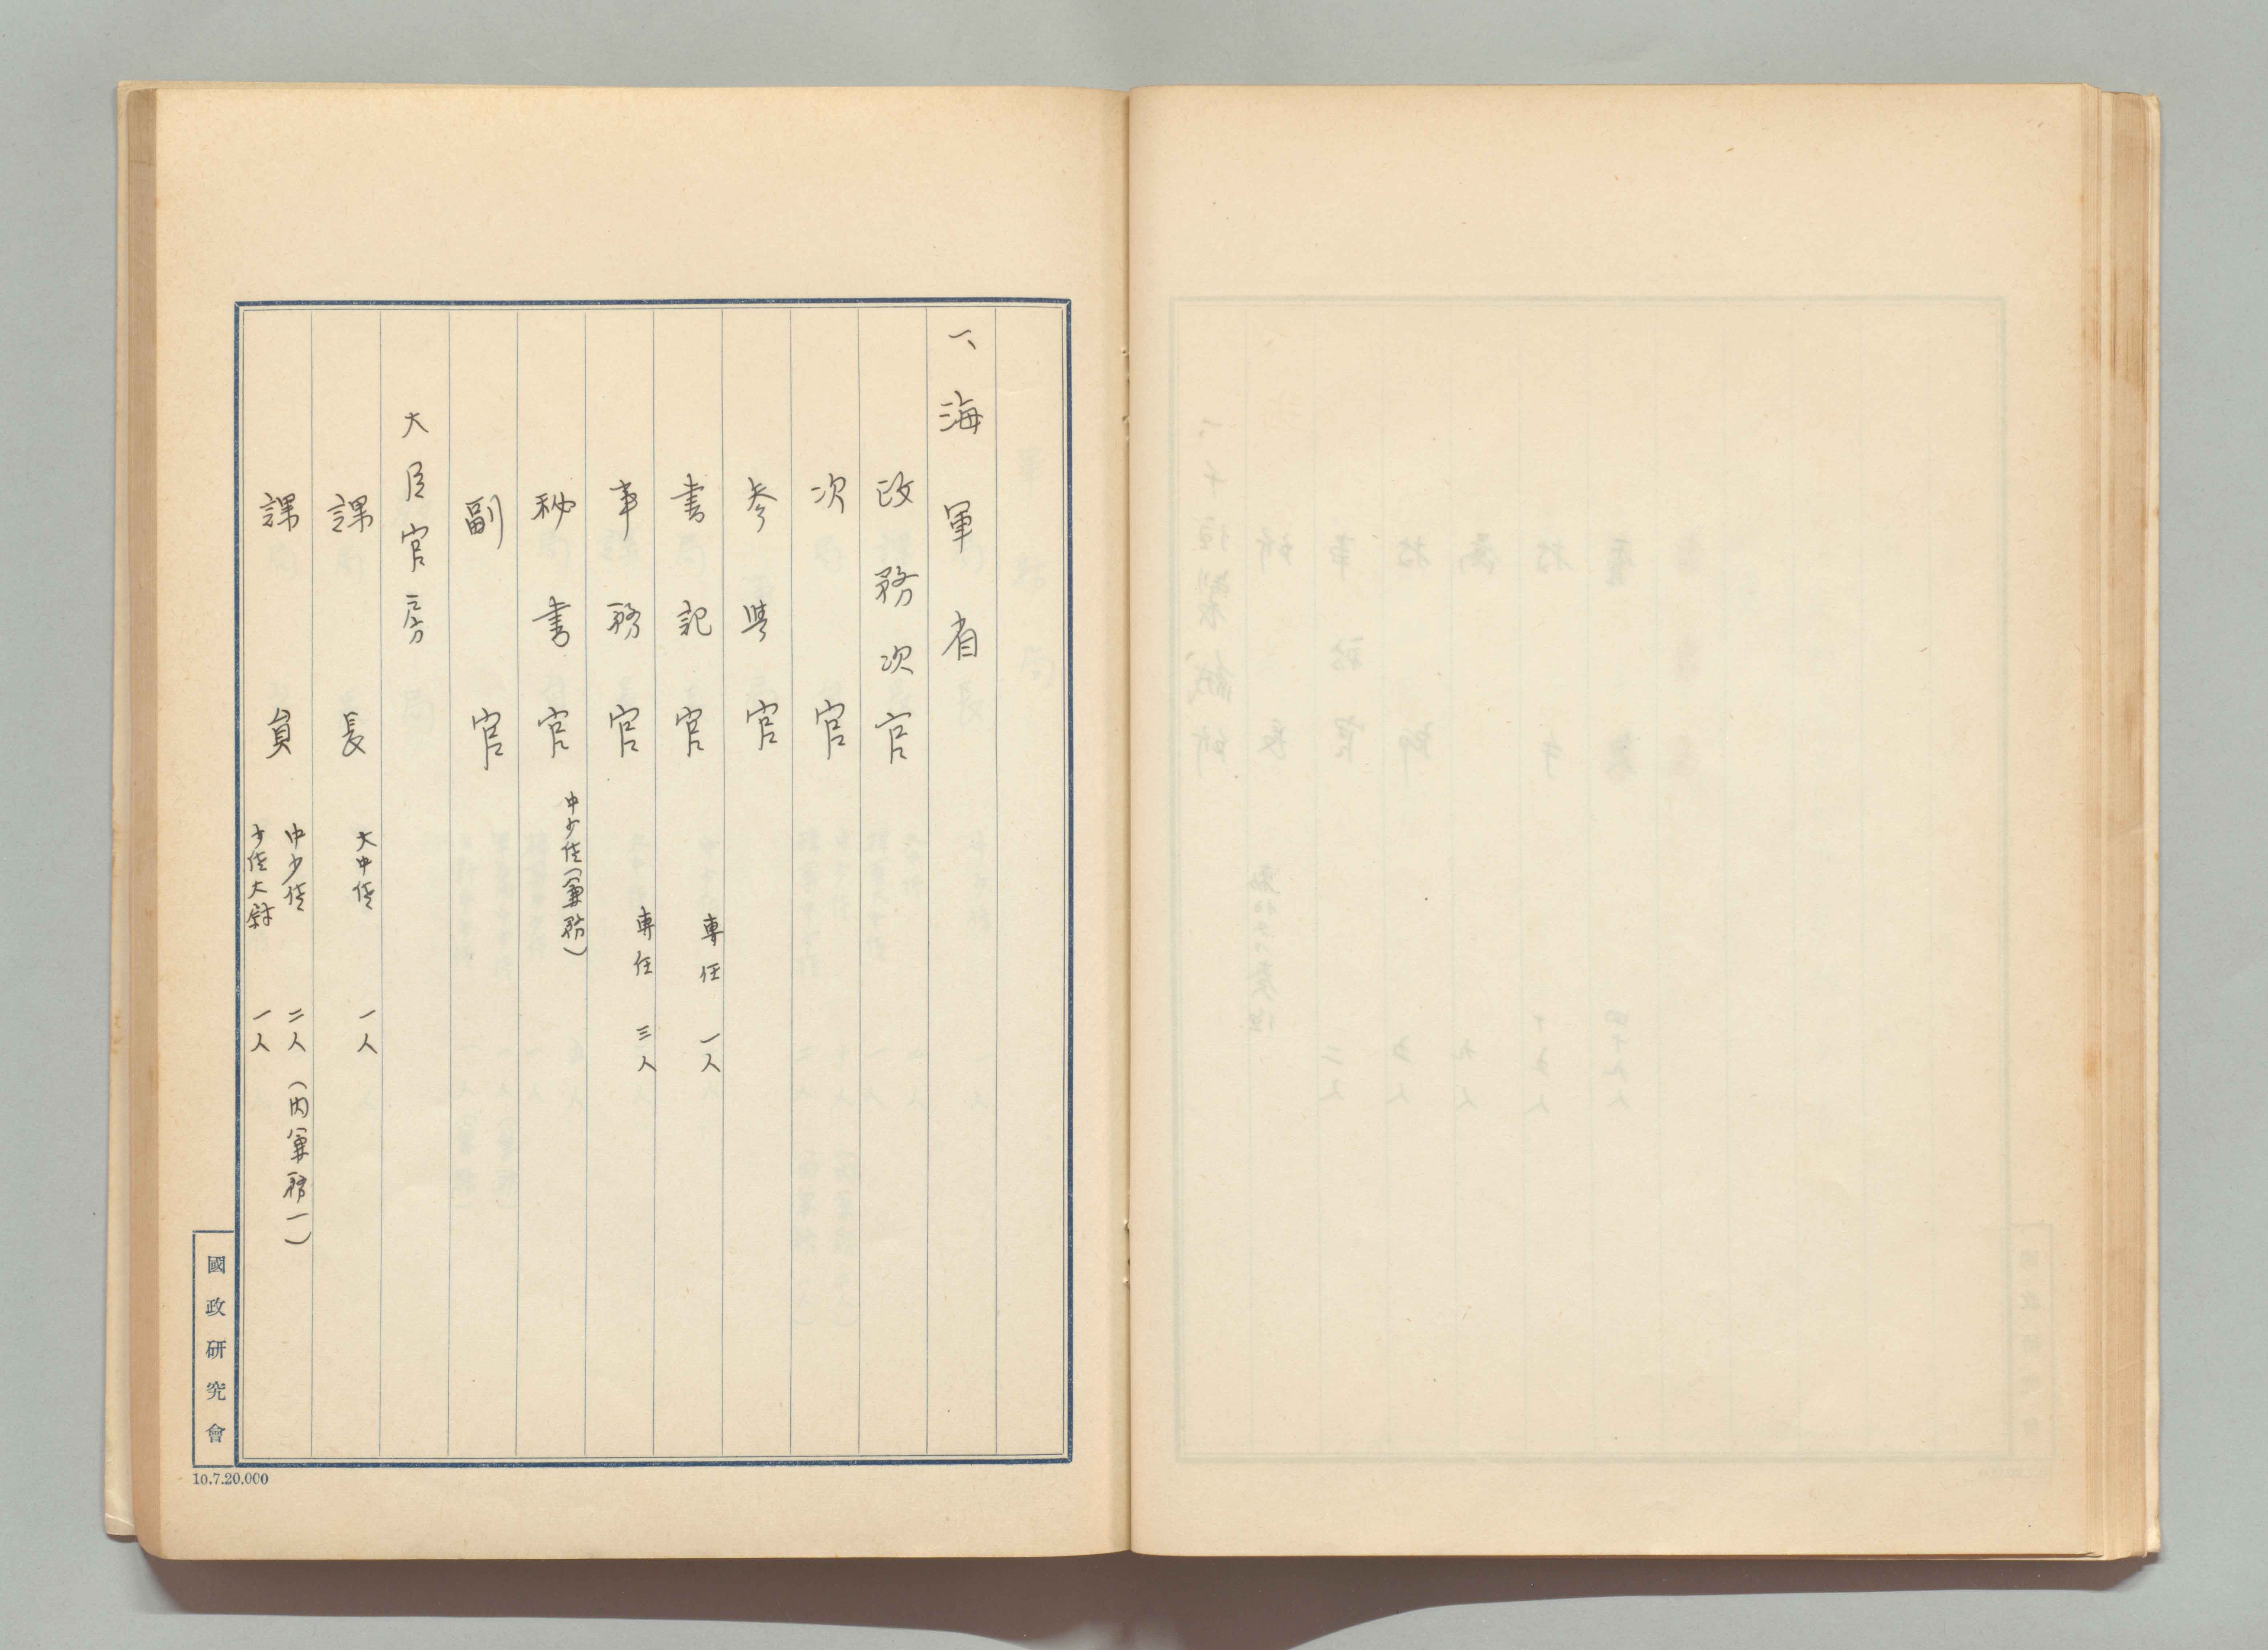 一、海軍省
政務次官
次官
参与官
書記官 専任 一人
事務官 専任 三人
秘書官 中少佐(兼務)
副官
大臣官房
課長 大中佐 一人
課員 中少佐 二人(内兼務一)
少佐大尉 一人
國政研究會
10.7.20.000